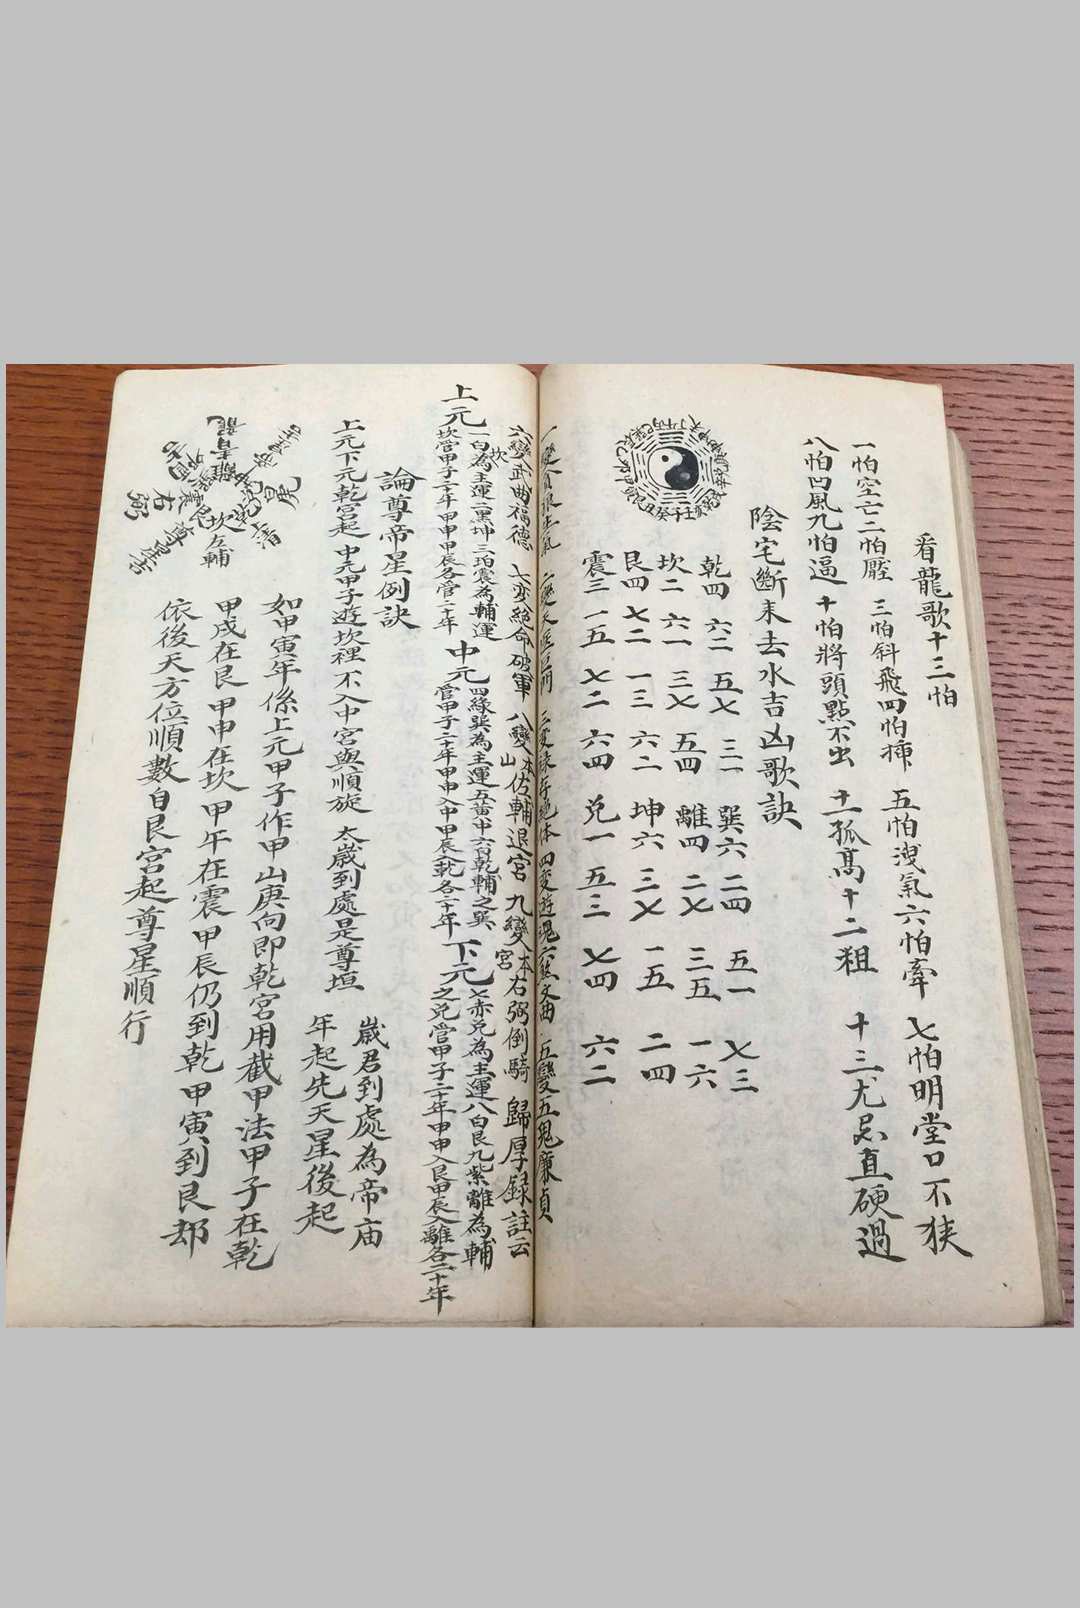 看龍歌十三怕
一怕空亡二怕壓 三怕斜飛四怕揷 五怕洩氣六怕牽 七怕明堂口不狹
八怕凹風九怕逼 十怕將頭點不出 十一孤高十二粗 十三尤忌直硬過
陰宅斷来去水吉凶歌訣
乾四 六二 五七 三一 巽六 二四 五一 七三
坎二 六一 三七 五四 離四 二七 三五 一六
艮四 七二 一三 六二 坤六 三七 一五 二四
震三 一五 七二 六四 兌一 五三 七四 六二
四变遊魂六煞文曲 五變五鬼廉貞
六變武曲福德 七变絶命破軍 八變本山佐輔退宮 九變本宮右弼倒騎 歸厚録註云
上元 一白為主運二黑坤三珀震為輔運 中元 四綠巽為主運五黄中六白乾輔之巽 下元 七赤兌為主運八白艮九紫離為輔
坎管甲子二十年甲申甲辰各管二十年 管甲子二十年甲申入中甲辰入乾各二十年 之兌管甲子二十年甲申入艮甲辰入離各二十年
論尊帝星例訣
上元下元乾宮起 中元甲子遊坎裡 不入中宮與順旋 太歲到處是尊垣
歲君到處為帝庙
年起先天星後起
如甲寅年係上元甲子作甲山庚向即乾宮用截甲法甲子在乾
甲戌在艮 甲申在坎 甲午在震 甲辰仍到乾 甲寅到艮却
依後天方位順數自艮宮起尊星順行
坎 左輔
右弼